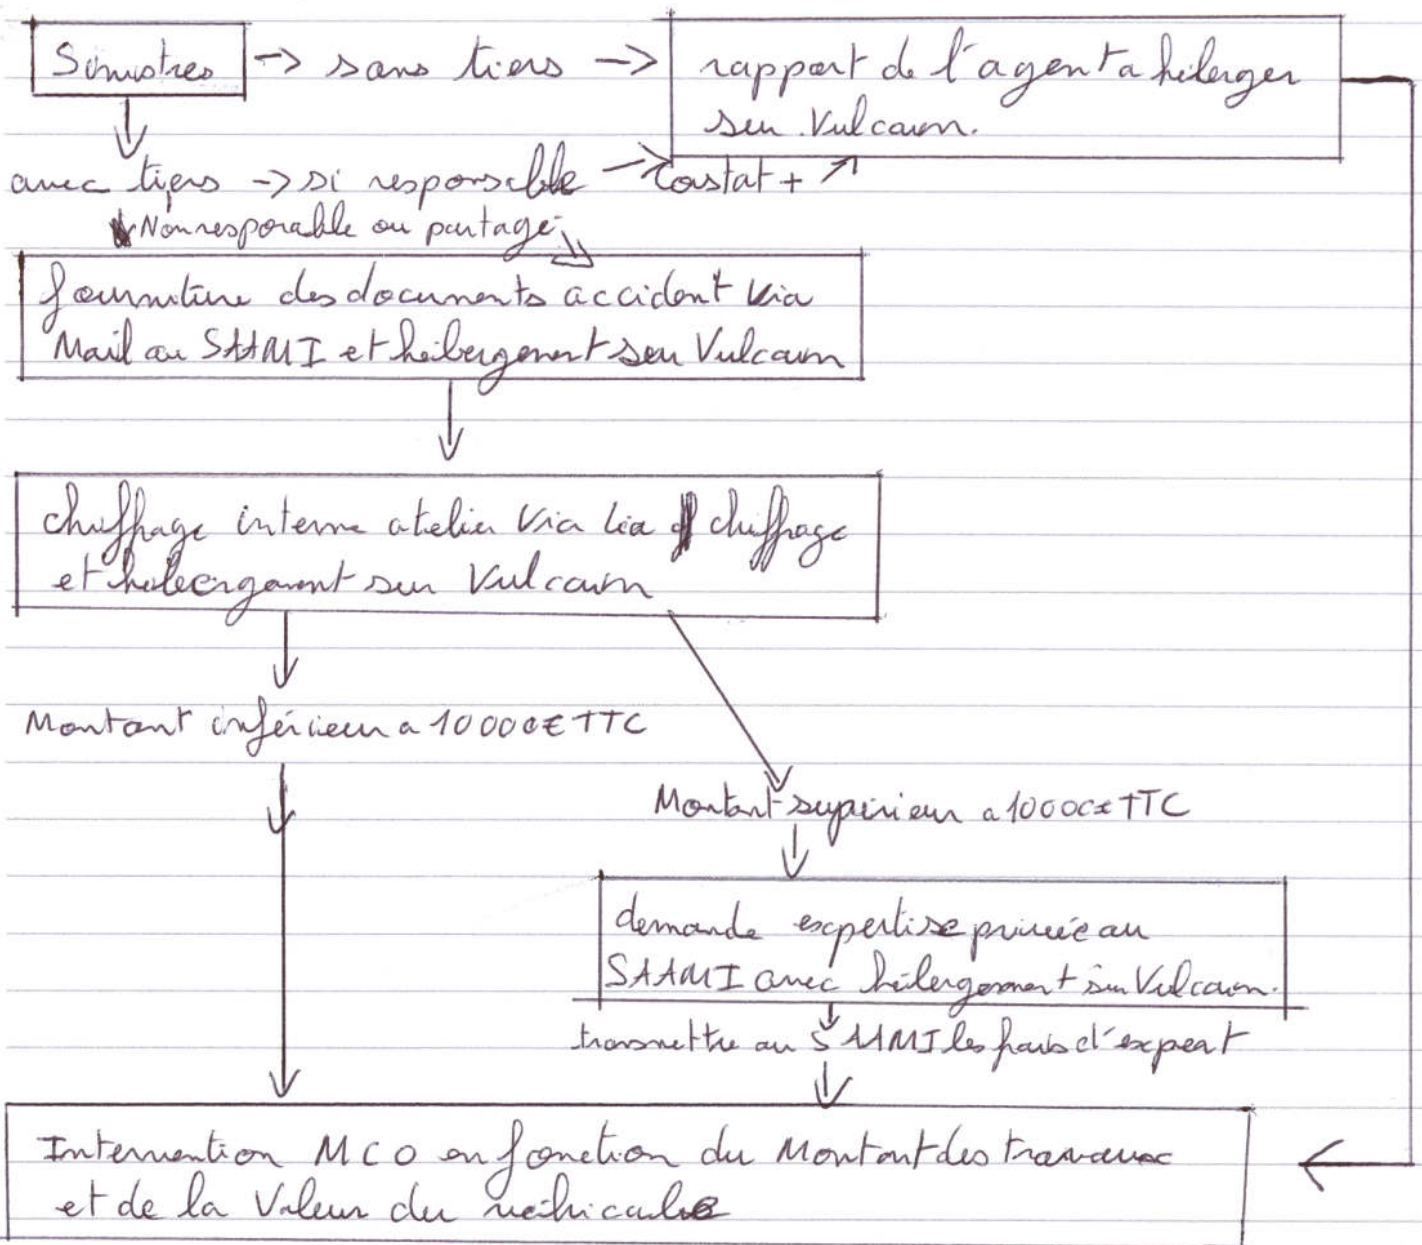 Sinistres -> sans tiers -> rapport de l'agent a héberger
sur Vulcain.
avec tiers -> si responsable -> Constat +
Non responsable ou partagé
fourniture des documents accident via
Mail au SAAMI et hébergement sur Vulcain
chiffrage interne atelier Via Lia chiffrage
et hébergement sur Vulcain
Montant inférieur a 10000€ TTC
Montant supérieur a 10000€ TTC
demande expertise privée au
SAAMI avec hébergement sur Vulcain.
transmettre au SAAMI les frais d'expert
Intervention MCO en fonction du Montant des travaux
et de la Valeur du véhicule